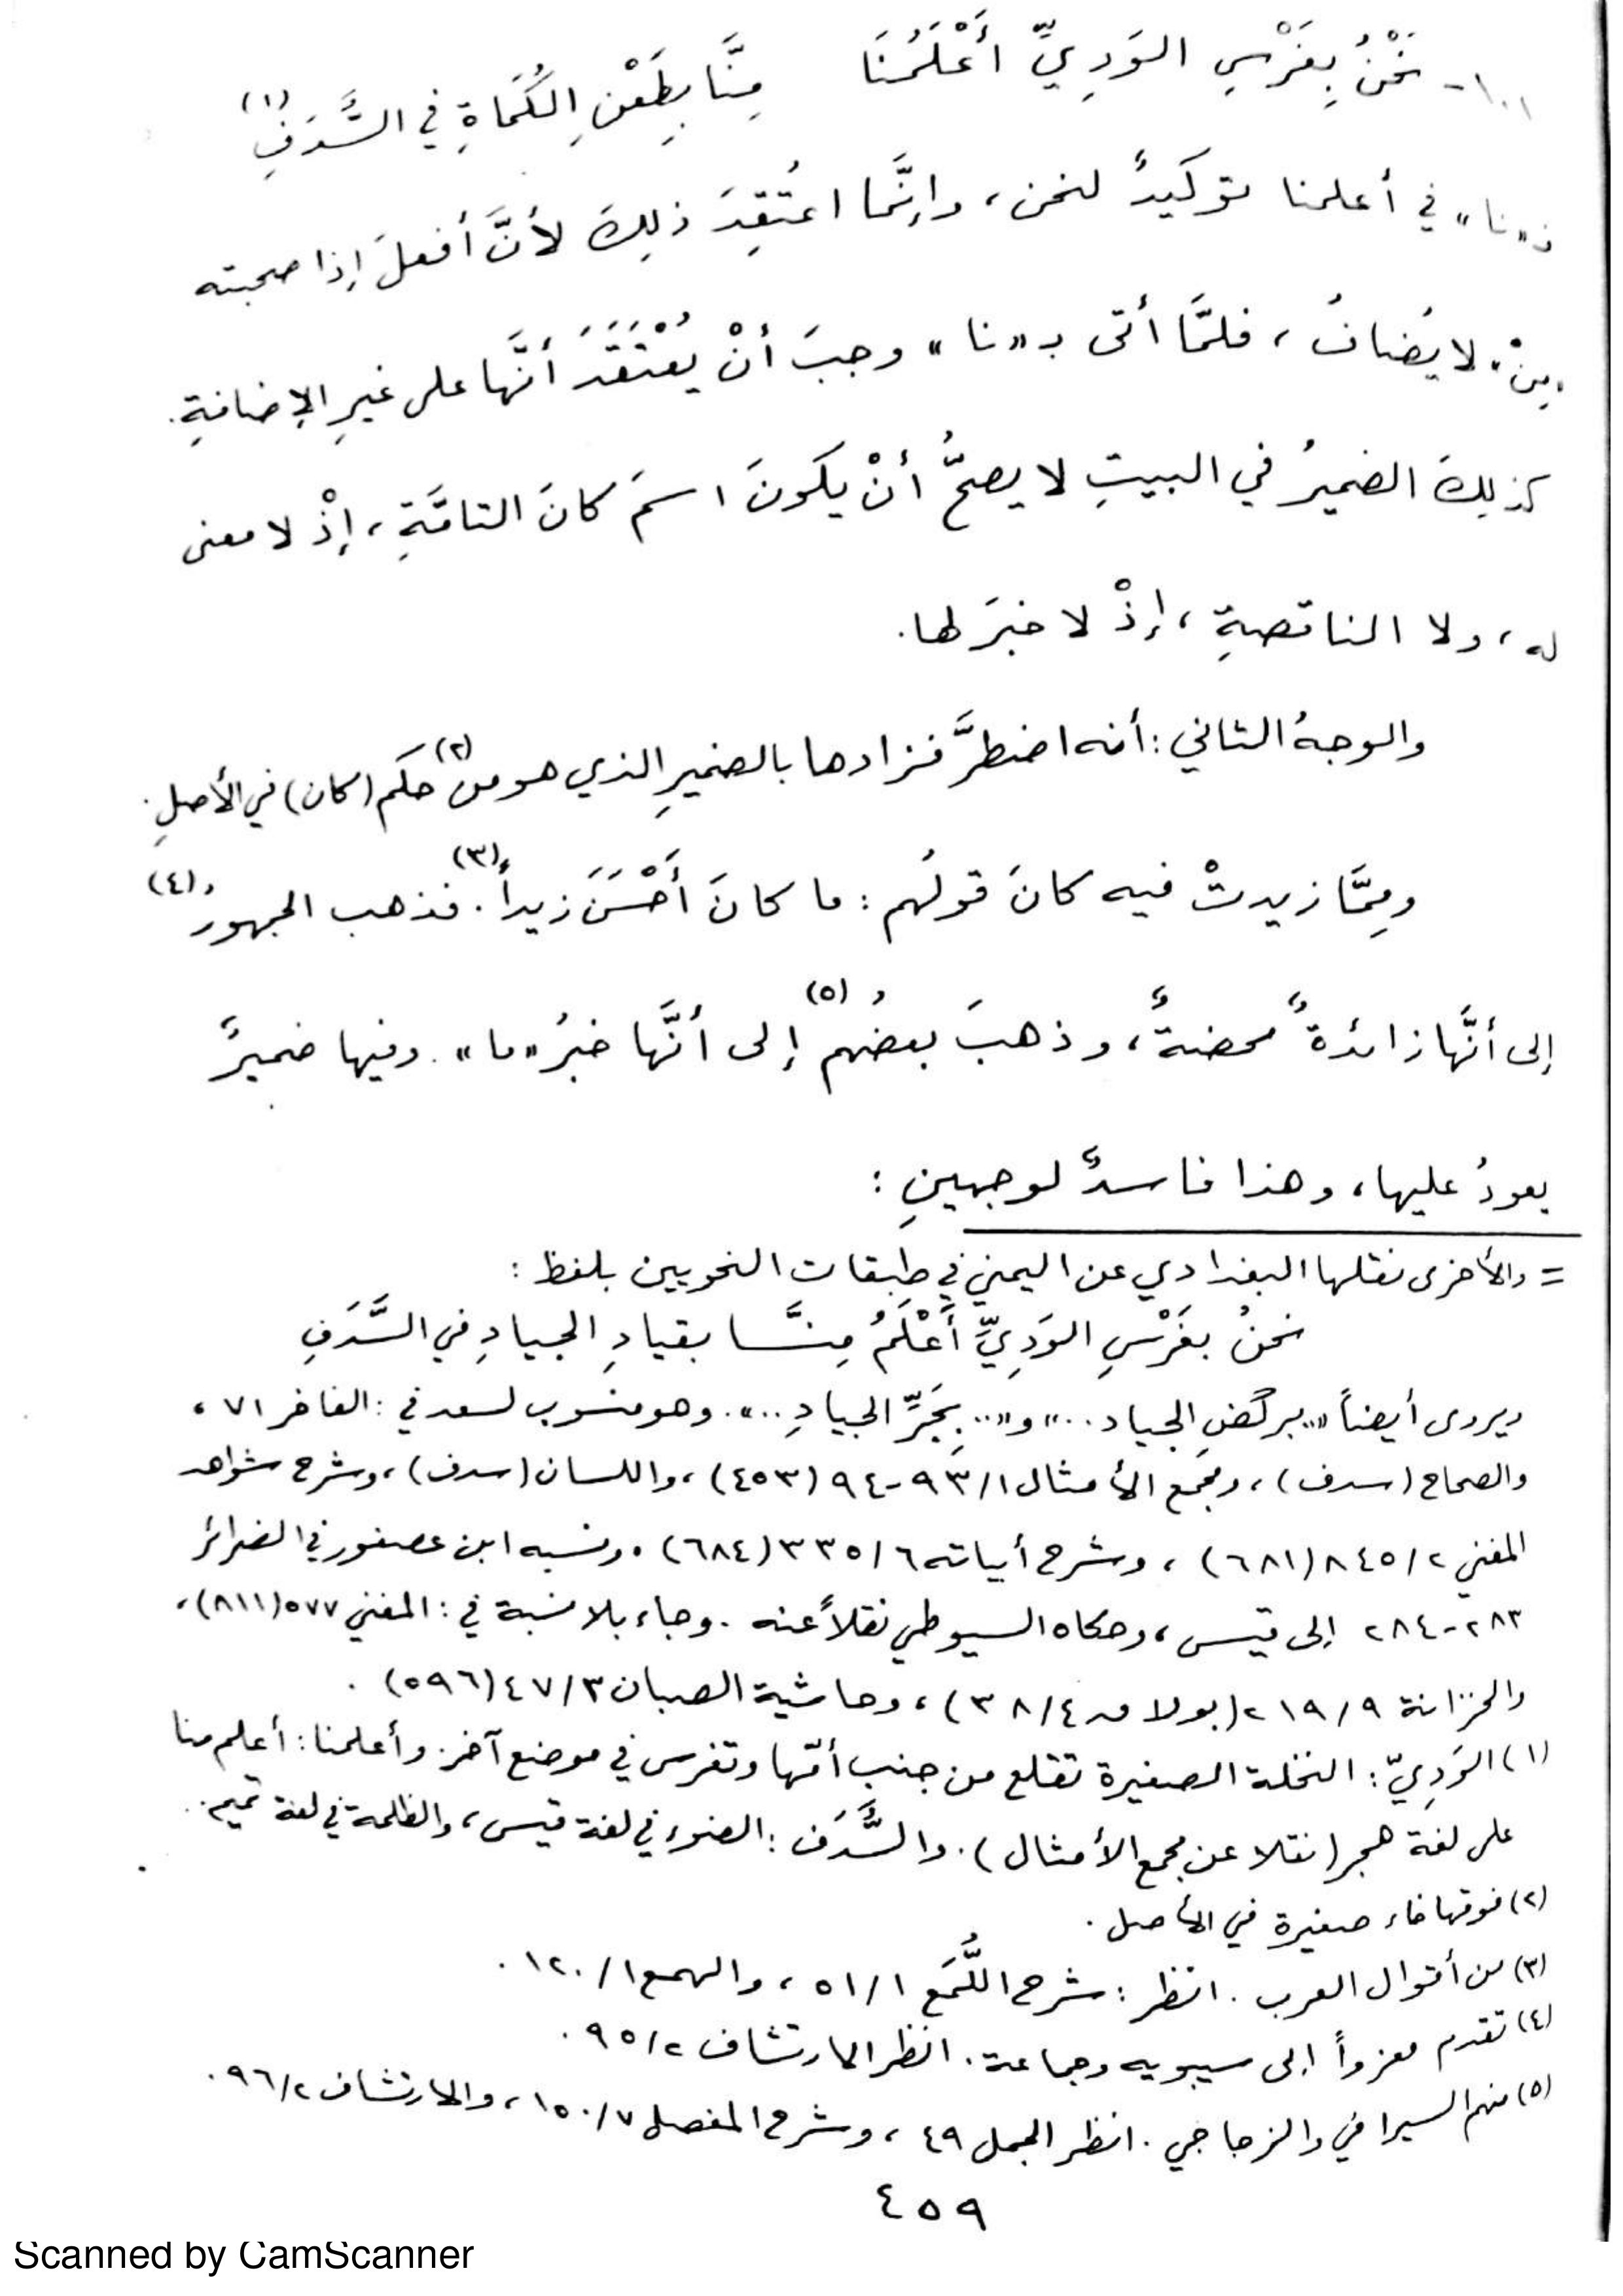 ١٠١- نَحْنُ بِغَرْسِ الوَدِيِّ أَعْلَمُنَا مِنَّا بِطَعْنِ الكُمَاةِ في السَّدَفِ (١)
فـ«نا» في أعلمنا توكيدٌ لنحن، وإنَّما اعتُقِدَ ذلِكَ لأنَّ أفعلَ إذا صحبته
«مِنْ» لا يُضافُ، فلمَّا أتى بـ«نا» وجبَ أنْ يُعْتَقَدَ أنَّها على غيرِ الإضافةِ.
كذلِكَ الضميرُ في البيتِ لا يصحُّ أنْ يكونَ اسمَ كانَ التامَّةِ، إذْ لا معنى
له، ولا الناقصةِ، إذْ لا خبرَ لها.
والوجهُ الثاني: أنه اضطرَّ فزادها بالضميرِ الذي هو من (٢) حكم (كان) في الأصلِ.
ومِمَّا زيدتْ فيه كانَ قولُهم: ما كانَ أَحْسَنَ زيداً (٣). فذهب الجمهورُ (٤)
إلى أنَّها زائدةٌ محضةٌ، وذهبَ بعضُهم (٥) إلى أنَّها خبرُ «ما». وفيها ضميرٌ
يعودُ عليها، وهذا فاسدٌ لوجهينِ:
= والأخرى نقلها البغدادي عن اليمني في طبقات النحويين بلفظ:
نحنُ بغَرْسِ الوَدِيِّ أَعْلَمُ مِنَّا بقيادِ الجيادِ في السَّدَفِ
ويروى أيضاً «.. بركضِ الجياد...» و«.. بِجَرِّ الجيادِ...». وهو منسوب لسعد في: الفاخر ٧١،
والصحاح (سدف)، ومجمع الأمثال ٩٣/١-٩٤ (٤٥٣)، واللسان (سدف)، وشرح شواهد
المغني ٨٤٥/٢ (٦٨١)، وشرح أبياته ٣٣٥/٦ (٦٨٤). ونسبه ابن عصفور في الضرائر
٢٨٣-٢٨٤ إلى قيس، وحكاه السيوطي نقلاً عنه. وجاء بلا نسبة في: المغني ٥٧٧ (٨١١)،
والخزانة ٢١٩/٩ (بولاق ٣٨/٤)، وحاشية الصبان ٤٧/٣ (٥٩٦).
(١) الوَدِيّ: النخلة الصغيرة تقلع من جنب أمّها وتغرس في موضع آخر. وأعلمنا: أعلم منا
على لغة هجر (نقلا عن مجمع الأمثال). والسُّدَف: الضوء في لغة قيس، والظلمة في لغة تميم.
(٢) فوقها خاء صغيرة في الأصل.
(٣) من أقوال العرب. انظر: شرح اللُّمَع ٥١/١، والهمع ١٢٠/١.
(٤) تقدم معزواً إلى سيبويه وجماعة. انظر الارتشاف ٩٥/٢.
(٥) منهم السيرافي والزجاجي. انظر الجمل ٤٩، وشرح المفصل ١٥٠/٧، والارتشاف ٩٦/٢.
٤٥٩
Scanned by CamScanner